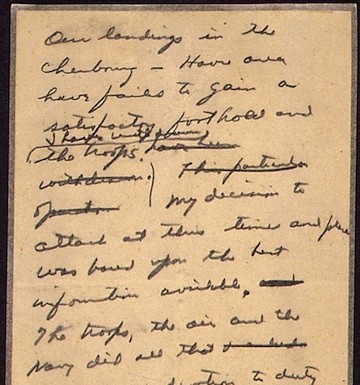 Our landings in the
Cherbourg - Havre area
have failed to gain a
satisfactory foothold and
I have withdrawn
the troops. have been
withdrawn. This particular
operation My decision to
attack at this time and place
was based upon the best
information available. and
The troops, the air and the
Navy did all that
devotion to duty